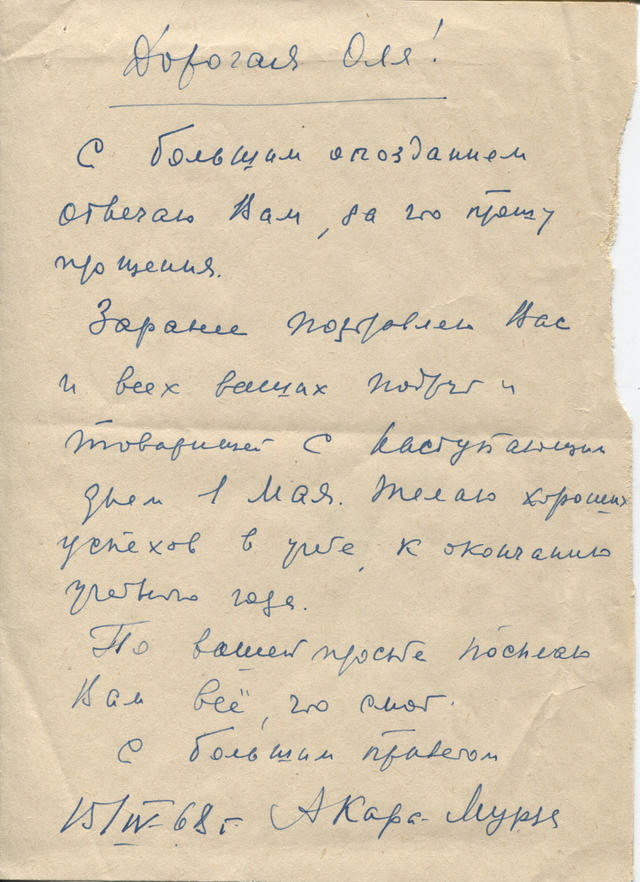 Дорогая Оля!
С большим опозданием
отвечаю Вам, за что прошу
прощения.
Заранее поздравляю Вас
и всех ваших подруг и
товарищей с наступающим
днем 1 Мая. Желаю хороших
успехов в учебе, к окончанию
учебного года.
По вашей просьбе посылаю
Вам всё, что смог.
С большим приветом
15/IV-68 г. А Кара-Мурза